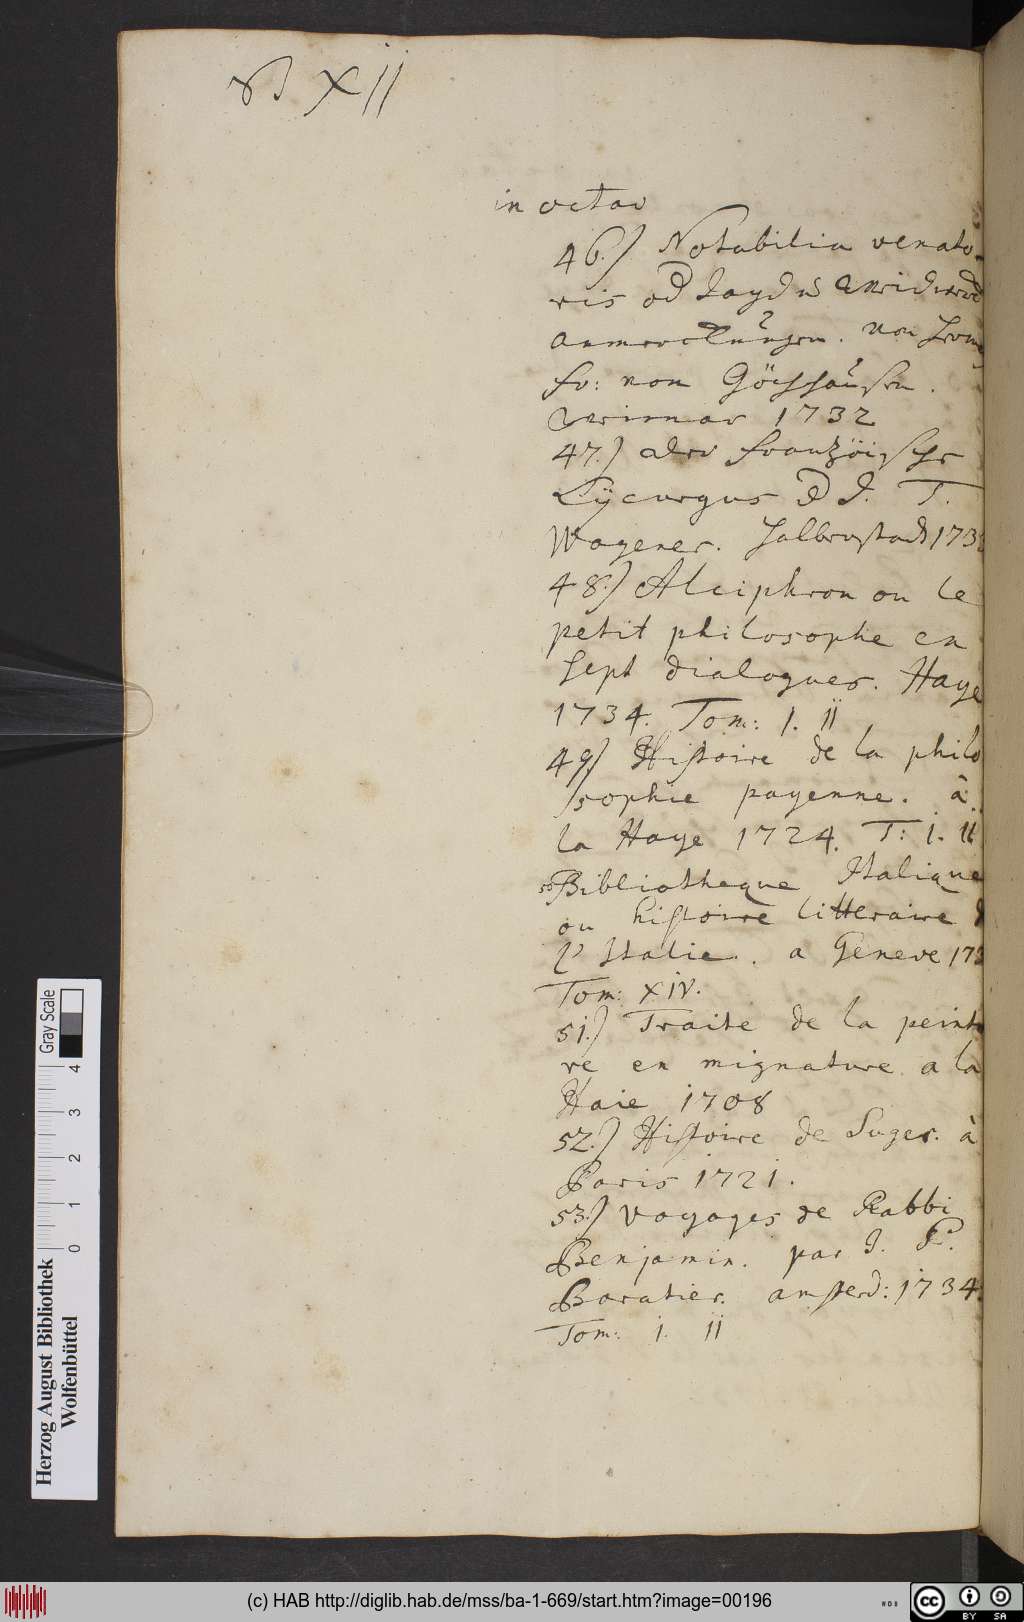 XII
in octav
46.) Notabilia venato
ris od Jagd u Weidwerck
anmerckungen. von Herm
Fr: von Göchhausen.
Weimar 1732
47.) der französische
Lÿcurgus D J. T.
Wagener. Halberstadt 173
48.) Alciphron ou le
petit philosophe en
sept dialogues. Haye
1734. Tom: I. II
49) Histoire de la philo
sophie payenne. à
la Haye 1724. T: I. II
50 Bibliotheque Italique
ou histoire litteraire d
l' Italie. a Geneve 173
Tom: XIV.
51.) Traite de la peint
re en mignature a la
Haie 1708
52.) Histoire de Suger. à
Paris 1721.
53.) Voyages de Rabbi
Benjamin. par J. P.
Baratier. amsterd: 1734.
Tom: I. II
Gray Scale
0 1 2 3 4
Herzog August Bibliothek
Wolfenbüttel
(c) HAB http://diglib.hab.de/mss/ba-1-669/start.htm?image=00196
WDB
cc BY SA